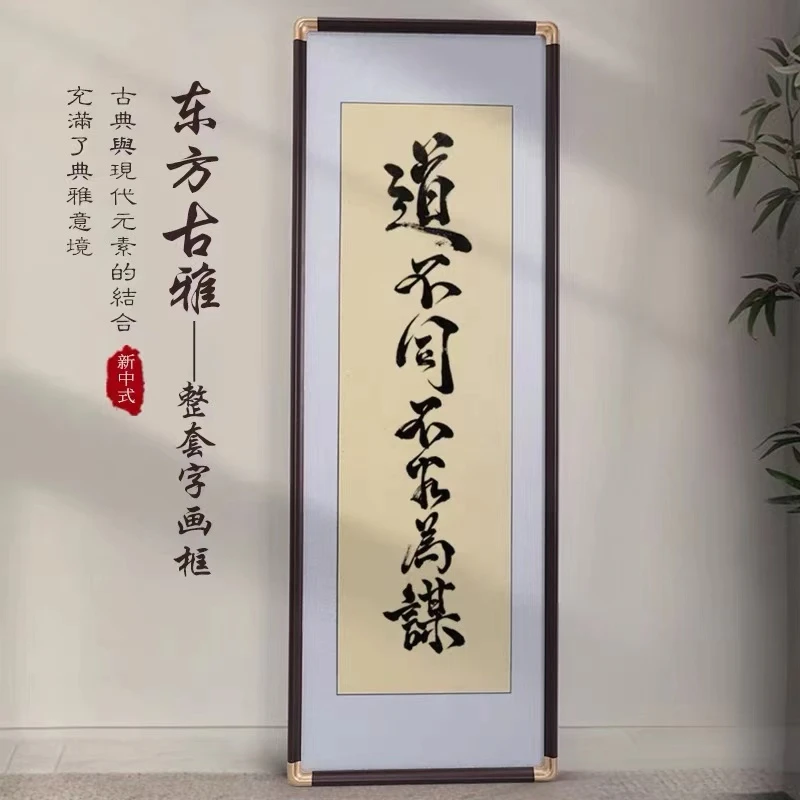 东方古雅——整套字画框
古典與現代元素的結合
充滿了典雅意境
新中式
道不同不相為謀